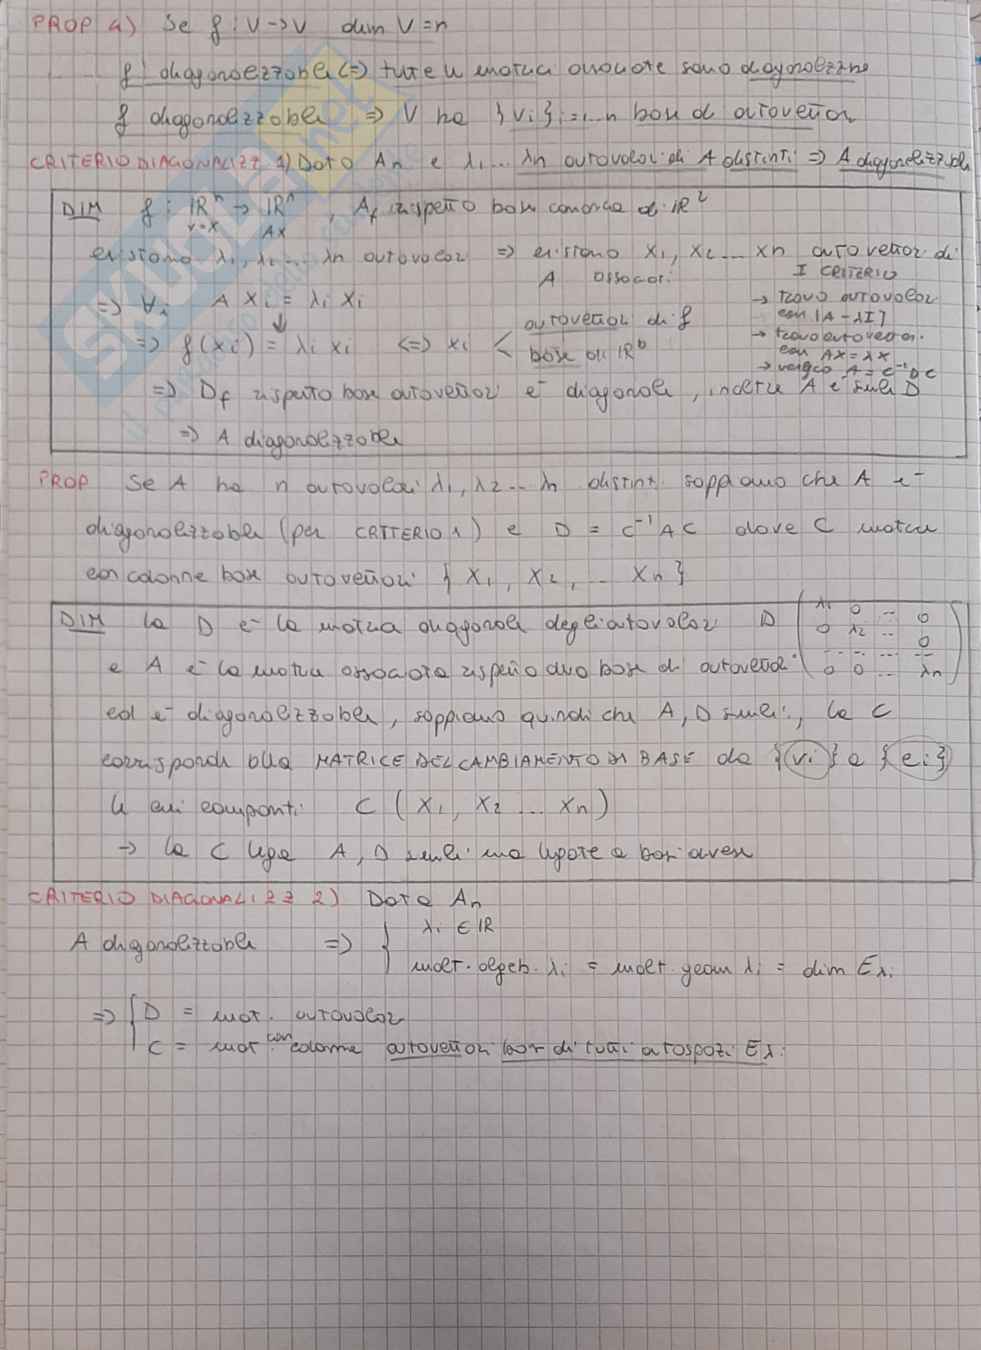 PROP 4) Se f: V→V dim V=n
f diagonalizzabile <=> tutte le matrici associate sono diagonalizz
f diagonalizzabile => V ha {vi}i=1...n base di autovettori
CRITERIO DIAGONALIZZ 1) Data An e λ1... λn autovalori di A distinti => A diagonalizzabile
DIM f: ℝⁿ → ℝⁿ, Af rispetto base canonica di ℝ²
v=X AX
esistono λ1, λ2 ... λn autovalori => esistono X1, X2 ... Xn autovettori di
A associati
I CRITERIO
=> ∀i A Xi = λi Xi
→ trovo autovalori
con |A-λI|
→ trovo autovettori
con AX=λX
→ verifico A = C⁻¹DC
↓
=> f(Xi) = λi Xi <=> Xi < autovettori di f
base di ℝⁿ
=> Df rispetto base autovettori è diagonale, inoltre A è simile D
=> A diagonalizzabile
PROP Se A ha n autovalori λ1, λ2... λn distinti sappiamo che A è
diagonalizzabile (per CRITERIO 1) e D = C⁻¹AC dove C matrice
con colonne base autovettori {X1, X2, ... Xn}
DIM la D è la matrice diagonale degli autovalori D (λ1 0 ... 0
0 λ2 ... 0
... ... ...
0 0 ... λn)
e A è la matrice associata rispetto base di autovettori
ed è diagonalizzabile, sappiamo quindi che A, D simili, la C
corrisponde alla MATRICE DEL CAMBIAMENTO DI BASE da {vi} a {ei}
le cui componti C (X1, X2 ... Xn)
→ la C lega A, D simili ma legate a basi diverse
CRITERIO DIAGONALIZZ 2) Data An
A diagonalizzabile => { λi ∈ ℝ
molt. algeb. λi = molt. geom λi = dim Eλi
=> { D = mat. autovalori
C = mat con colonne autovettori base di tutti autospazi Eλi